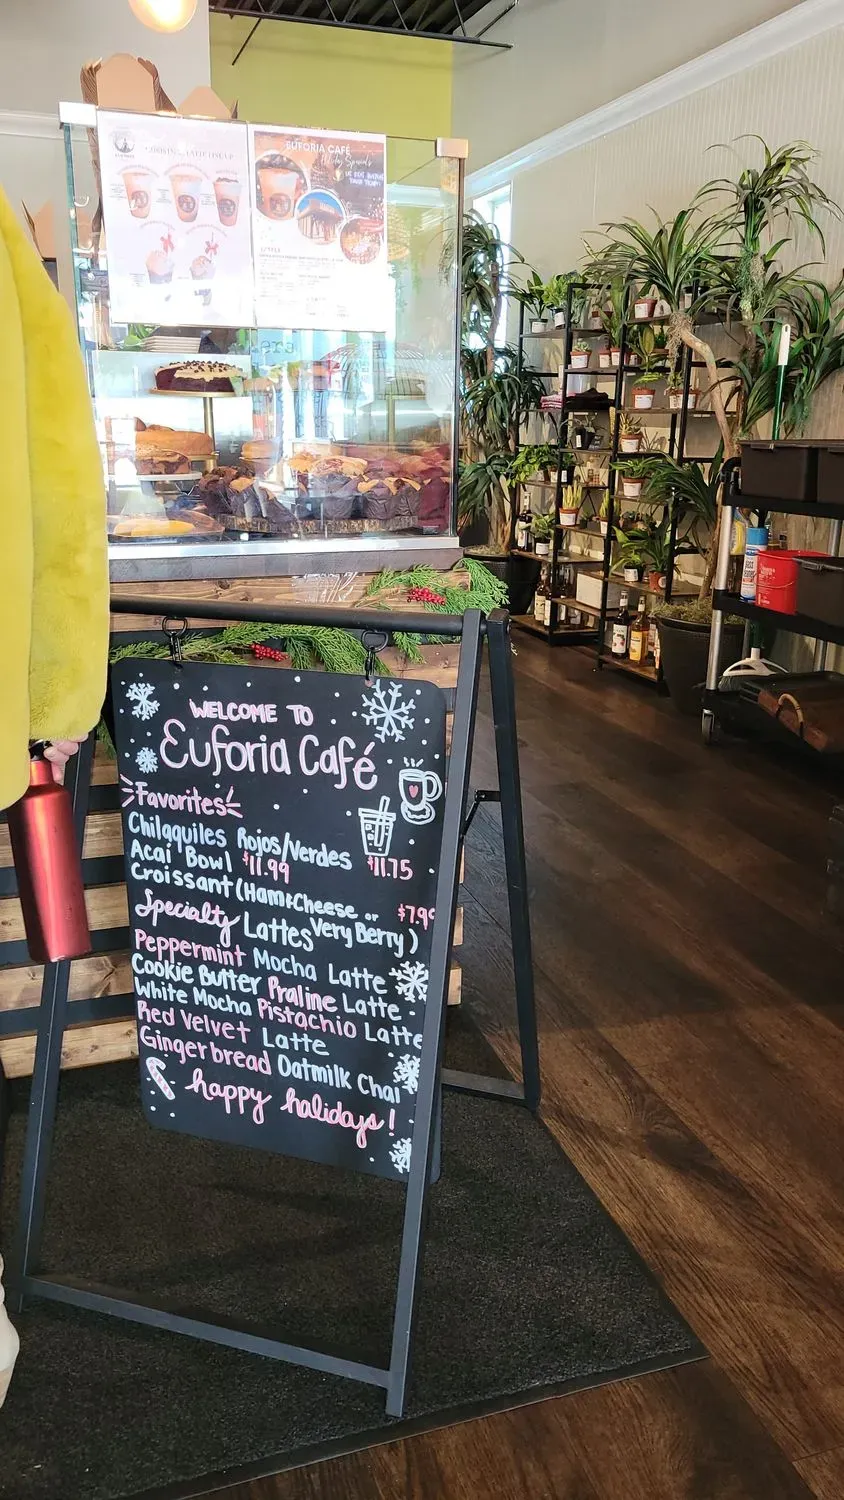 COOKIN LATTE LINEUP
EUFORIA CAFÉ
Holiday Specials
WELCOME TO
Euforia Café
Favorites
Chilaquiles Rojos/Verdes $11.75
Acai Bowl $11.99
Croissant (Ham & Cheese or Very Berry) $7.99
Specialty Lattes
Peppermint Mocha Latte
Cookie Butter Praline Latte
White Mocha Pistachio Latte
Red Velvet Latte
Gingerbread Oatmilk Chai
happy holidays!